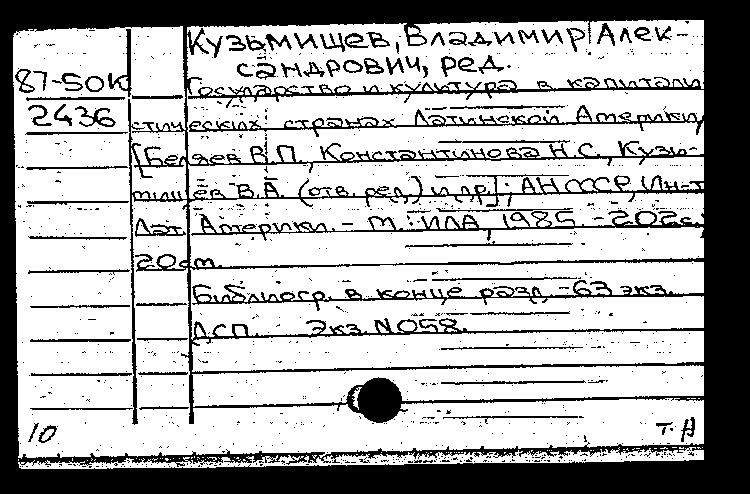 Кузьмищев, Владимир Алек-
сандрович, ред.
87-50К
Государство и культура в капитали-
2436
стических странах Латинской Америки/
[Беляев В.П., Константинова Н.С., Кузь-
мищев В.А. (отв. ред.) и др.]; АН СССР, Ин-т
Лат. Америки. - М.: ИЛА, 1985. - 202с.;
20см.
Библиогр. в конце разд. - 63 экз.
ДСП. Экз. N058.
10
т. Н